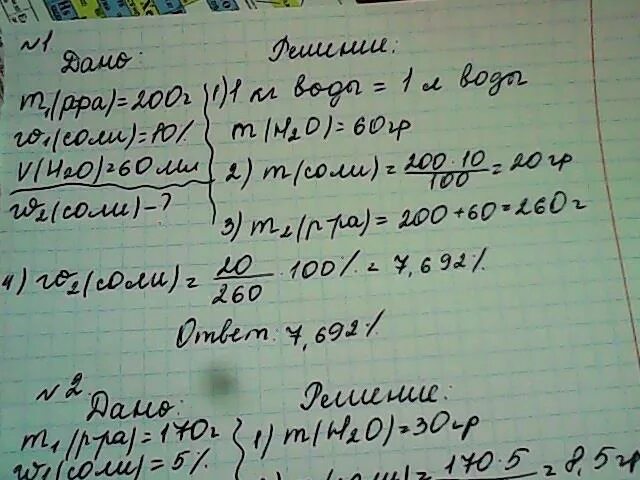 №1
Дано:
Решение:
m₁(р-ра)=200г
w₁(соли)=10%
V(H₂O)=60мл
w₂(соли)-?
1) 1 кг воды = 1 л воды
m(H₂O)=60гр
2) m(соли)=200·10/100=20гр
3) m₂(р-ра)=200+60=260г
4) w₂(соли)=20/260·100%=7,692%
Ответ: 7,692%
№2
Дано:
Решение:
m₁(р-ра)=170г
w₁(соли)=5%
1) m(H₂O)=30гр
170·5
=8,5гр